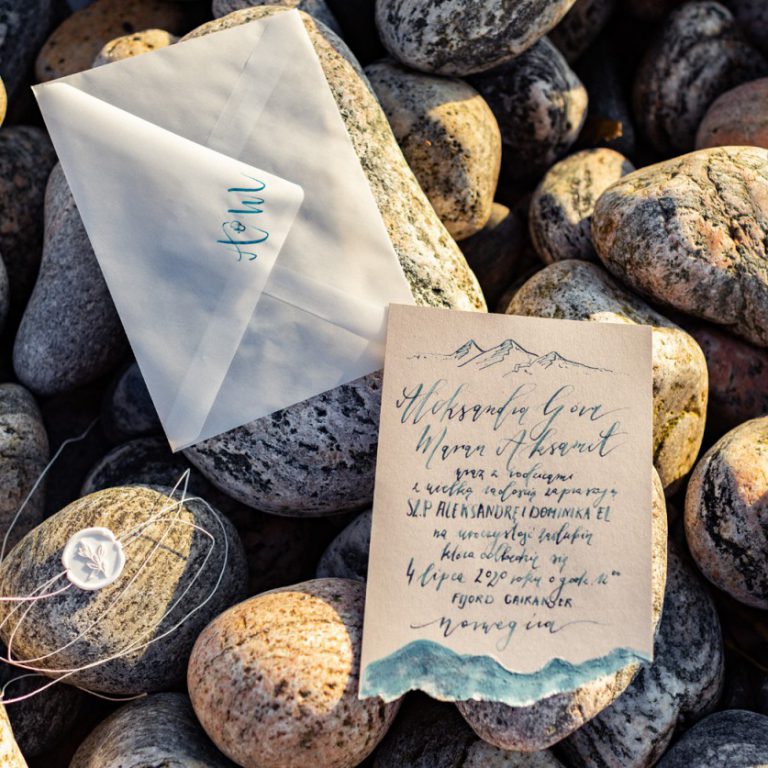 Aleksandra Góra
Marian Aksamit
wraz z rodzicami
z wielką radością zapraszają
SZ.P ALEKSANDRĘ I DOMINIKA EL
na uroczystość zaślubin
która odbędzie się
4 lipca 2020 roku o godz.
FJORD GAIRANGER
Norwegia